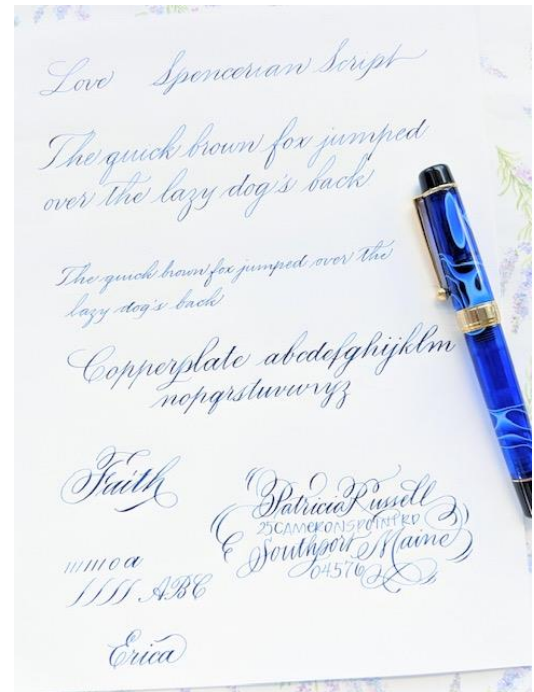 Love Spencerian Script
The quick brown fox jumped
over the lazy dog's back
The quick brown fox jumped over the
lazy dog's back
Copperplate abcdefghijklm
nopqrstuvwxyz
Faith
Patricia Russell
25 CAMERONS POINT RD
Southport Maine
04576
a
ABC
Erica